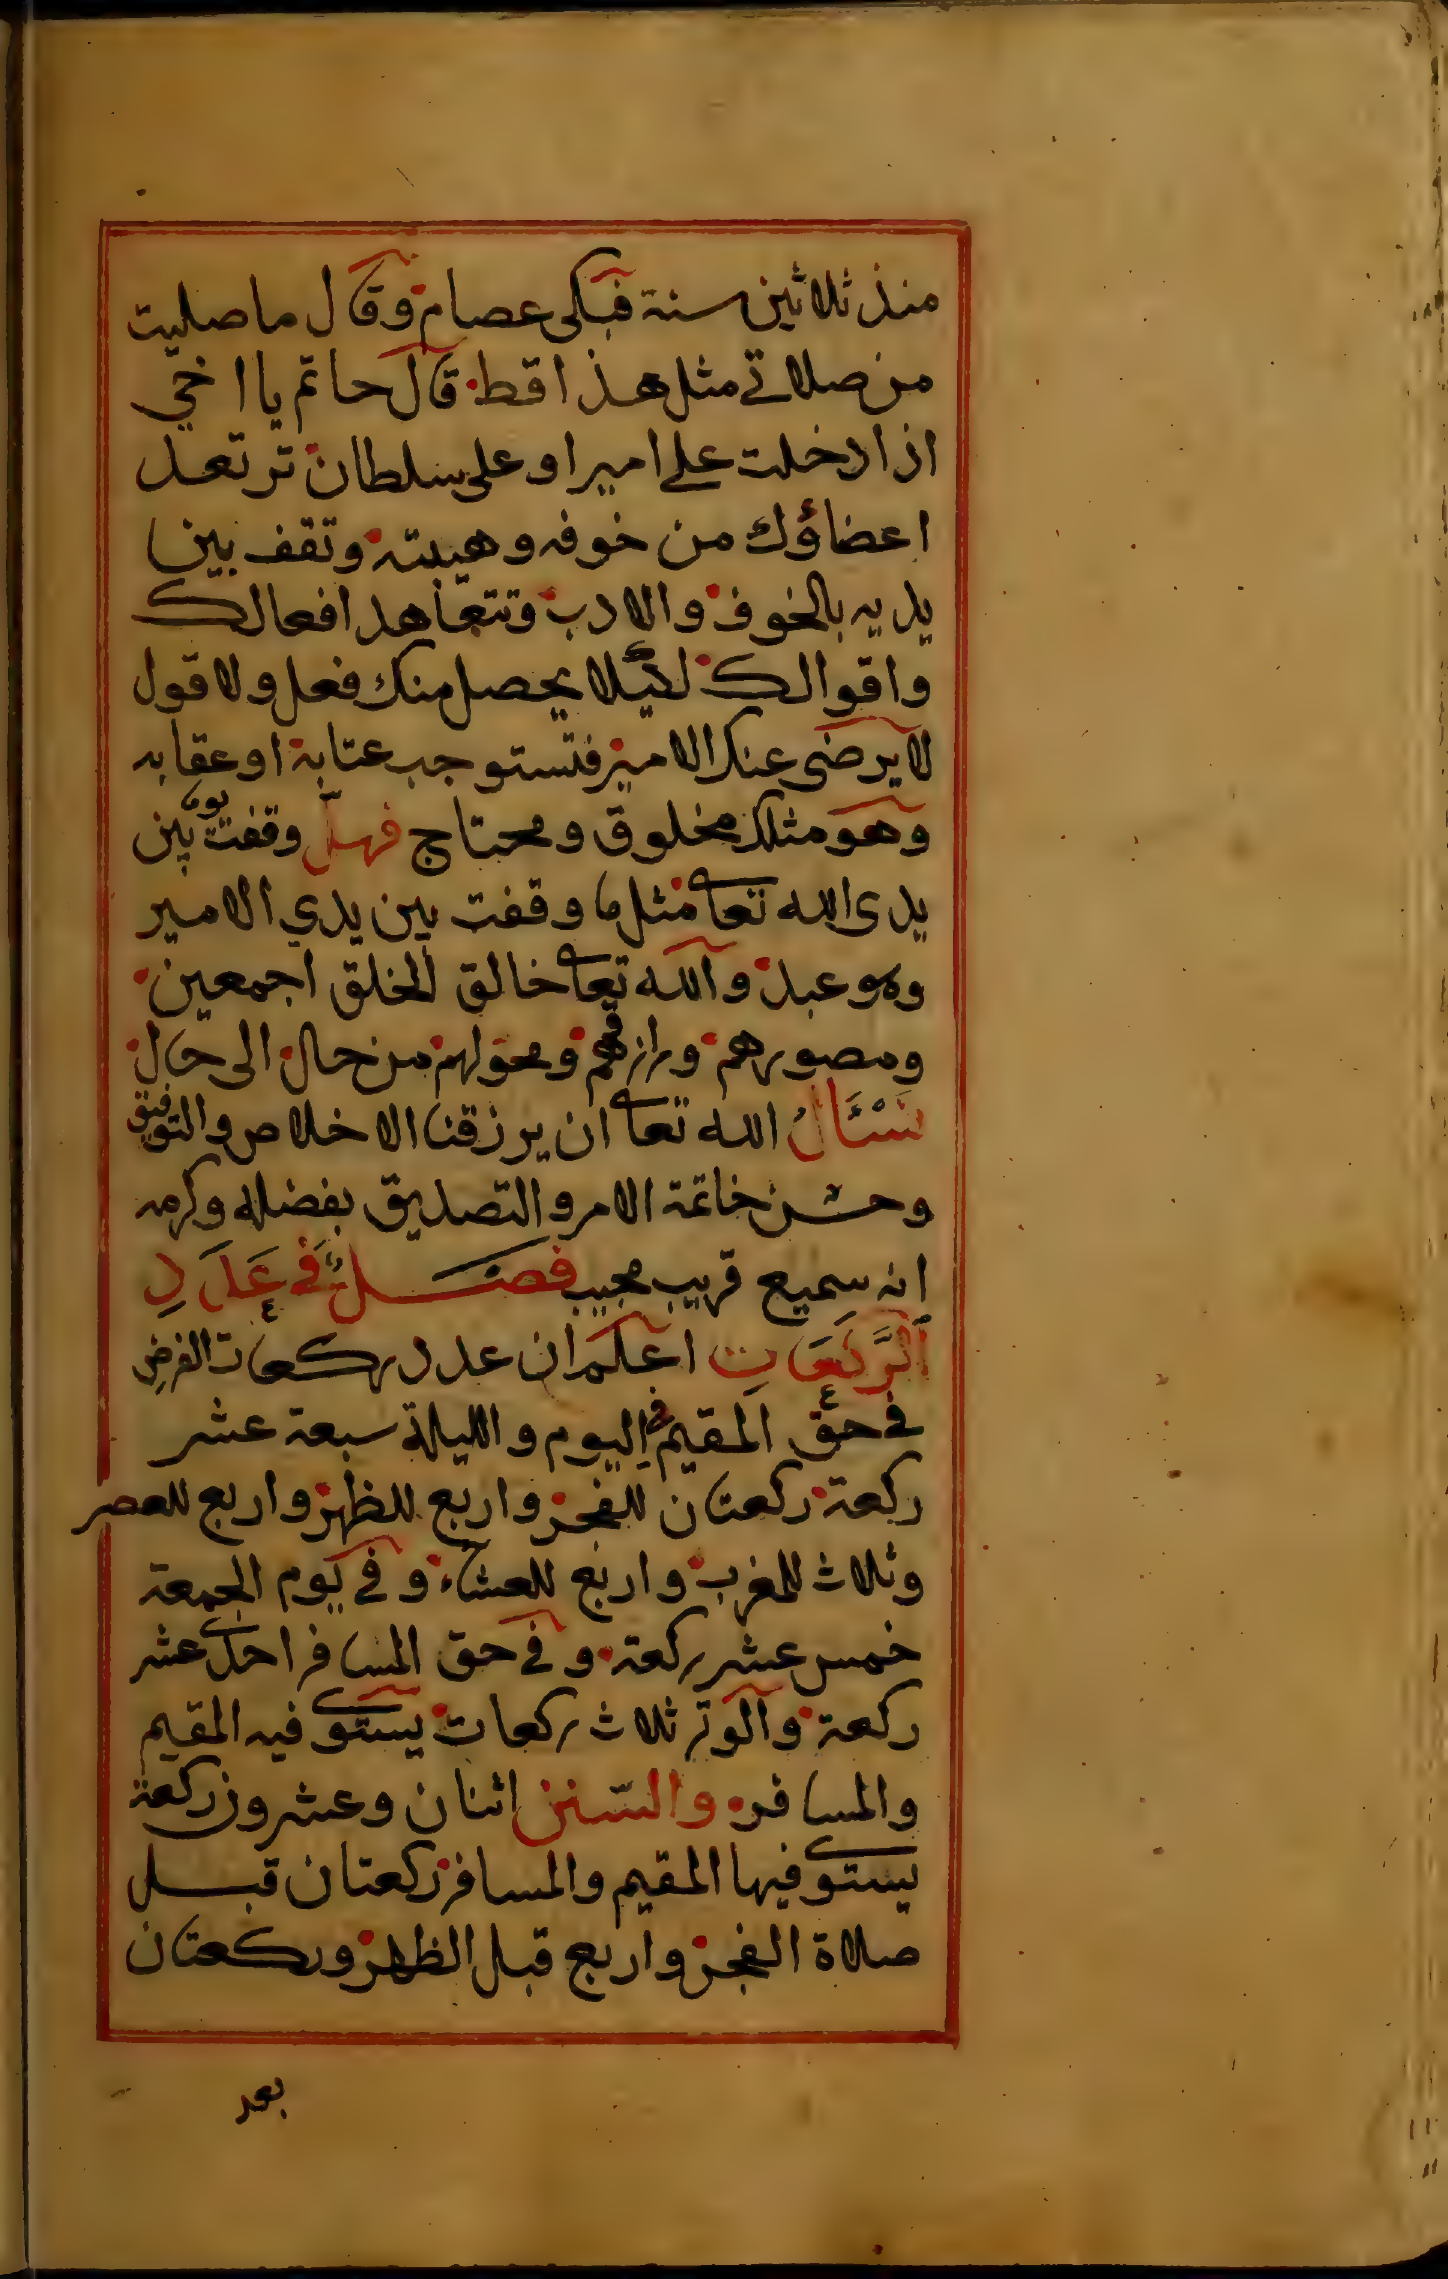 منذ ثلاثين سنة فبكى عصام وقال ما صليت
من صلاتي مثل هذا قط قال حاتم يا اخي
اذا دخلت على امير او على سلطان ترتعد
اعضاؤك من خوفه وهيبته وتقف بين
يديه بالخوف والادب وتتعاهد افعالك
واقوالك لئيلا يحصل منك فعل ولا قول
لا يرضى عنك الامير فتستوجب عتابة او عقابه
وهو مثلك مخلوق ومحتاج فهل وقفت يوما بين
يدى الله تعا مثل ما وقفت بين يدي الامير
وهو عبد والله تعا خالق الخلق اجمعين
ومصورهم ورازقهم ومحولهم من حال الى حال
نسئال الله تعا ان يرزقنا الاخلاص والتوفيق
وحسن خاتمة الامر والتصديق بفضله وكرمه
انه سميع قريب مجيب فصل في عدد
الركعات اعلم ان عدد ركعات الفرض
في حق المقيم في اليوم والليلة سبعة عشر
ركعة ركعتان للفجر واربع للظهر واربع للعصر
وثلاث للمغرب واربع للعشاء وفي يوم الجمعة
خمس عشر ركعة وفي حق المسافر احدى عشر
ركعة والوتر ثلاث ركعات يستوى فيه المقيم
والمسافر والسنن اثنان وعشرون ركعة
يستوى فيها المقيم والمسافر ركعتان قبل
صلاة الفجر واربع قبل الظهر وركعتان
بعد